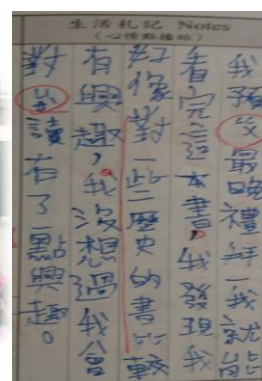 生活札記 Notes
(心情點播站)
我預祝最晚禮拜一我就能
看完這本書，我發現我
好像對一些歷史的書比較
有興趣，我沒想過我會
對岁讀有了一點興趣。